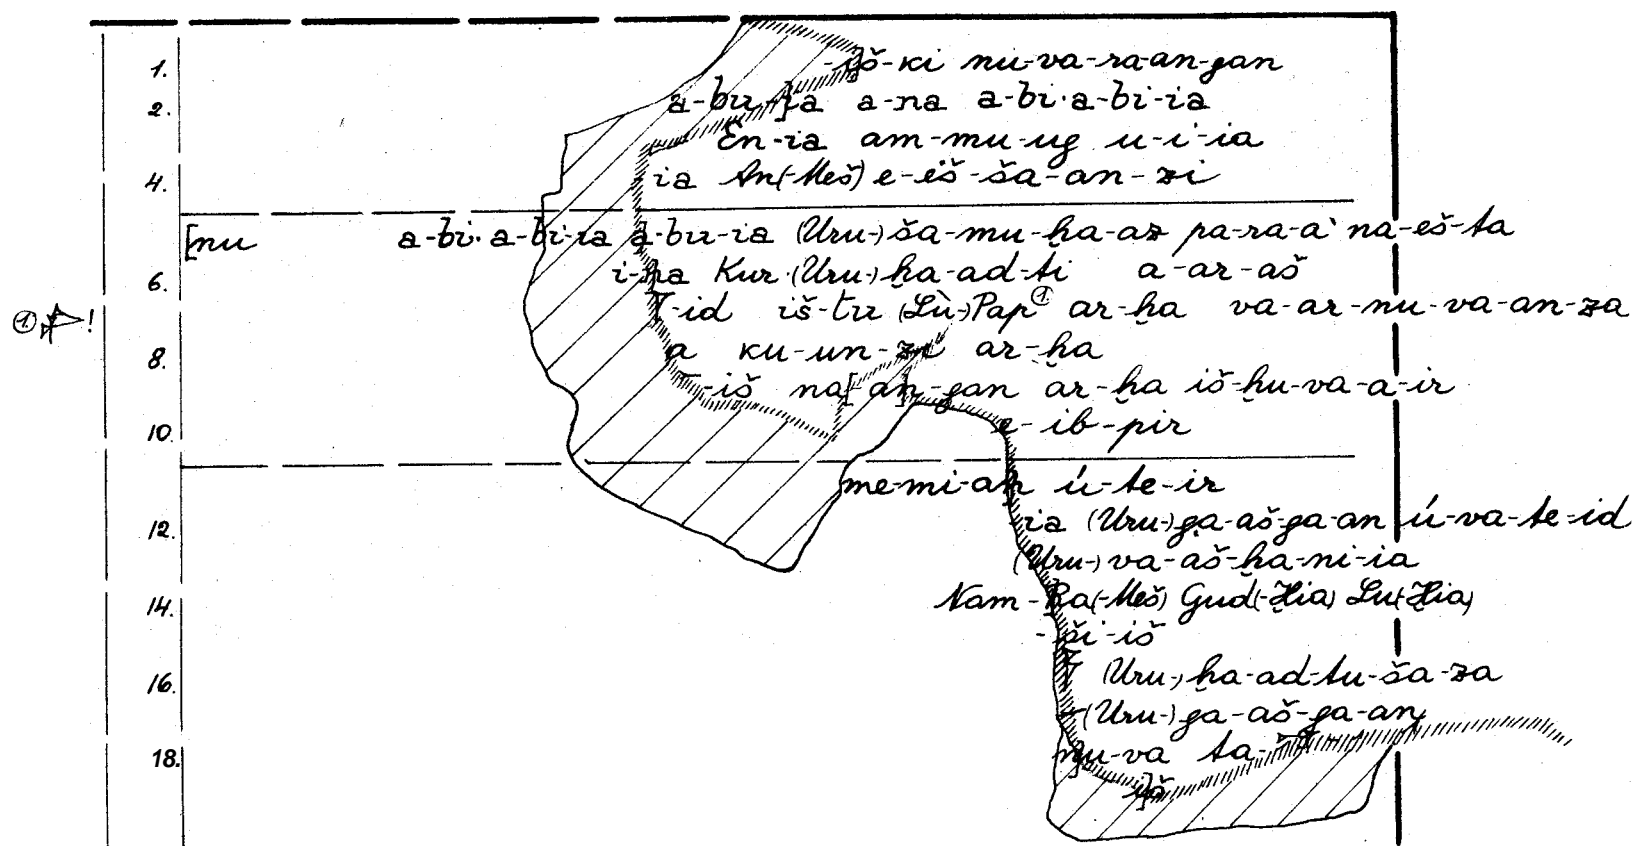 1. -iš-ki nu-va-ra-an-gan
2. a-bu-]ia a-na a-bi·a-bi-ia
En-ia am-mu-ug u-i-ia
4. -ia An(-Meš) e-eš-ša-an-zi
[nu a-bi·a-bi-ia a-bu-ia (Uru-)ša-mu-ḫa-az pa-ra-a na-eš-ta
6. i-na Kur·(Uru-)ḫa-ad-ti a-ar-aš
①! -id iš-tu (Lù-)Pap① ar-ḫa va-ar-nu-va-an-za
8. a ku-un-zi ar-ḫa
-iš na[-an]-gan ar-ḫa iš-ḫu-va-a-ir
10. e-ib-pir
me-mi-an ú-te-ir
12. -ia (Uru-)ga-aš-ga-an ú-va-te-id
(Uru-)va-aš-ḫa-ni-ia
14. Nam-Ra(-Meš) Gud(-Ḫia) Lu(-Ḫia)
-ši-iš
16. (Uru-)ḫa-ad-tu-ša-za
-(Uru-)ga-aš-ga-an
18. nu-va ta-
iš